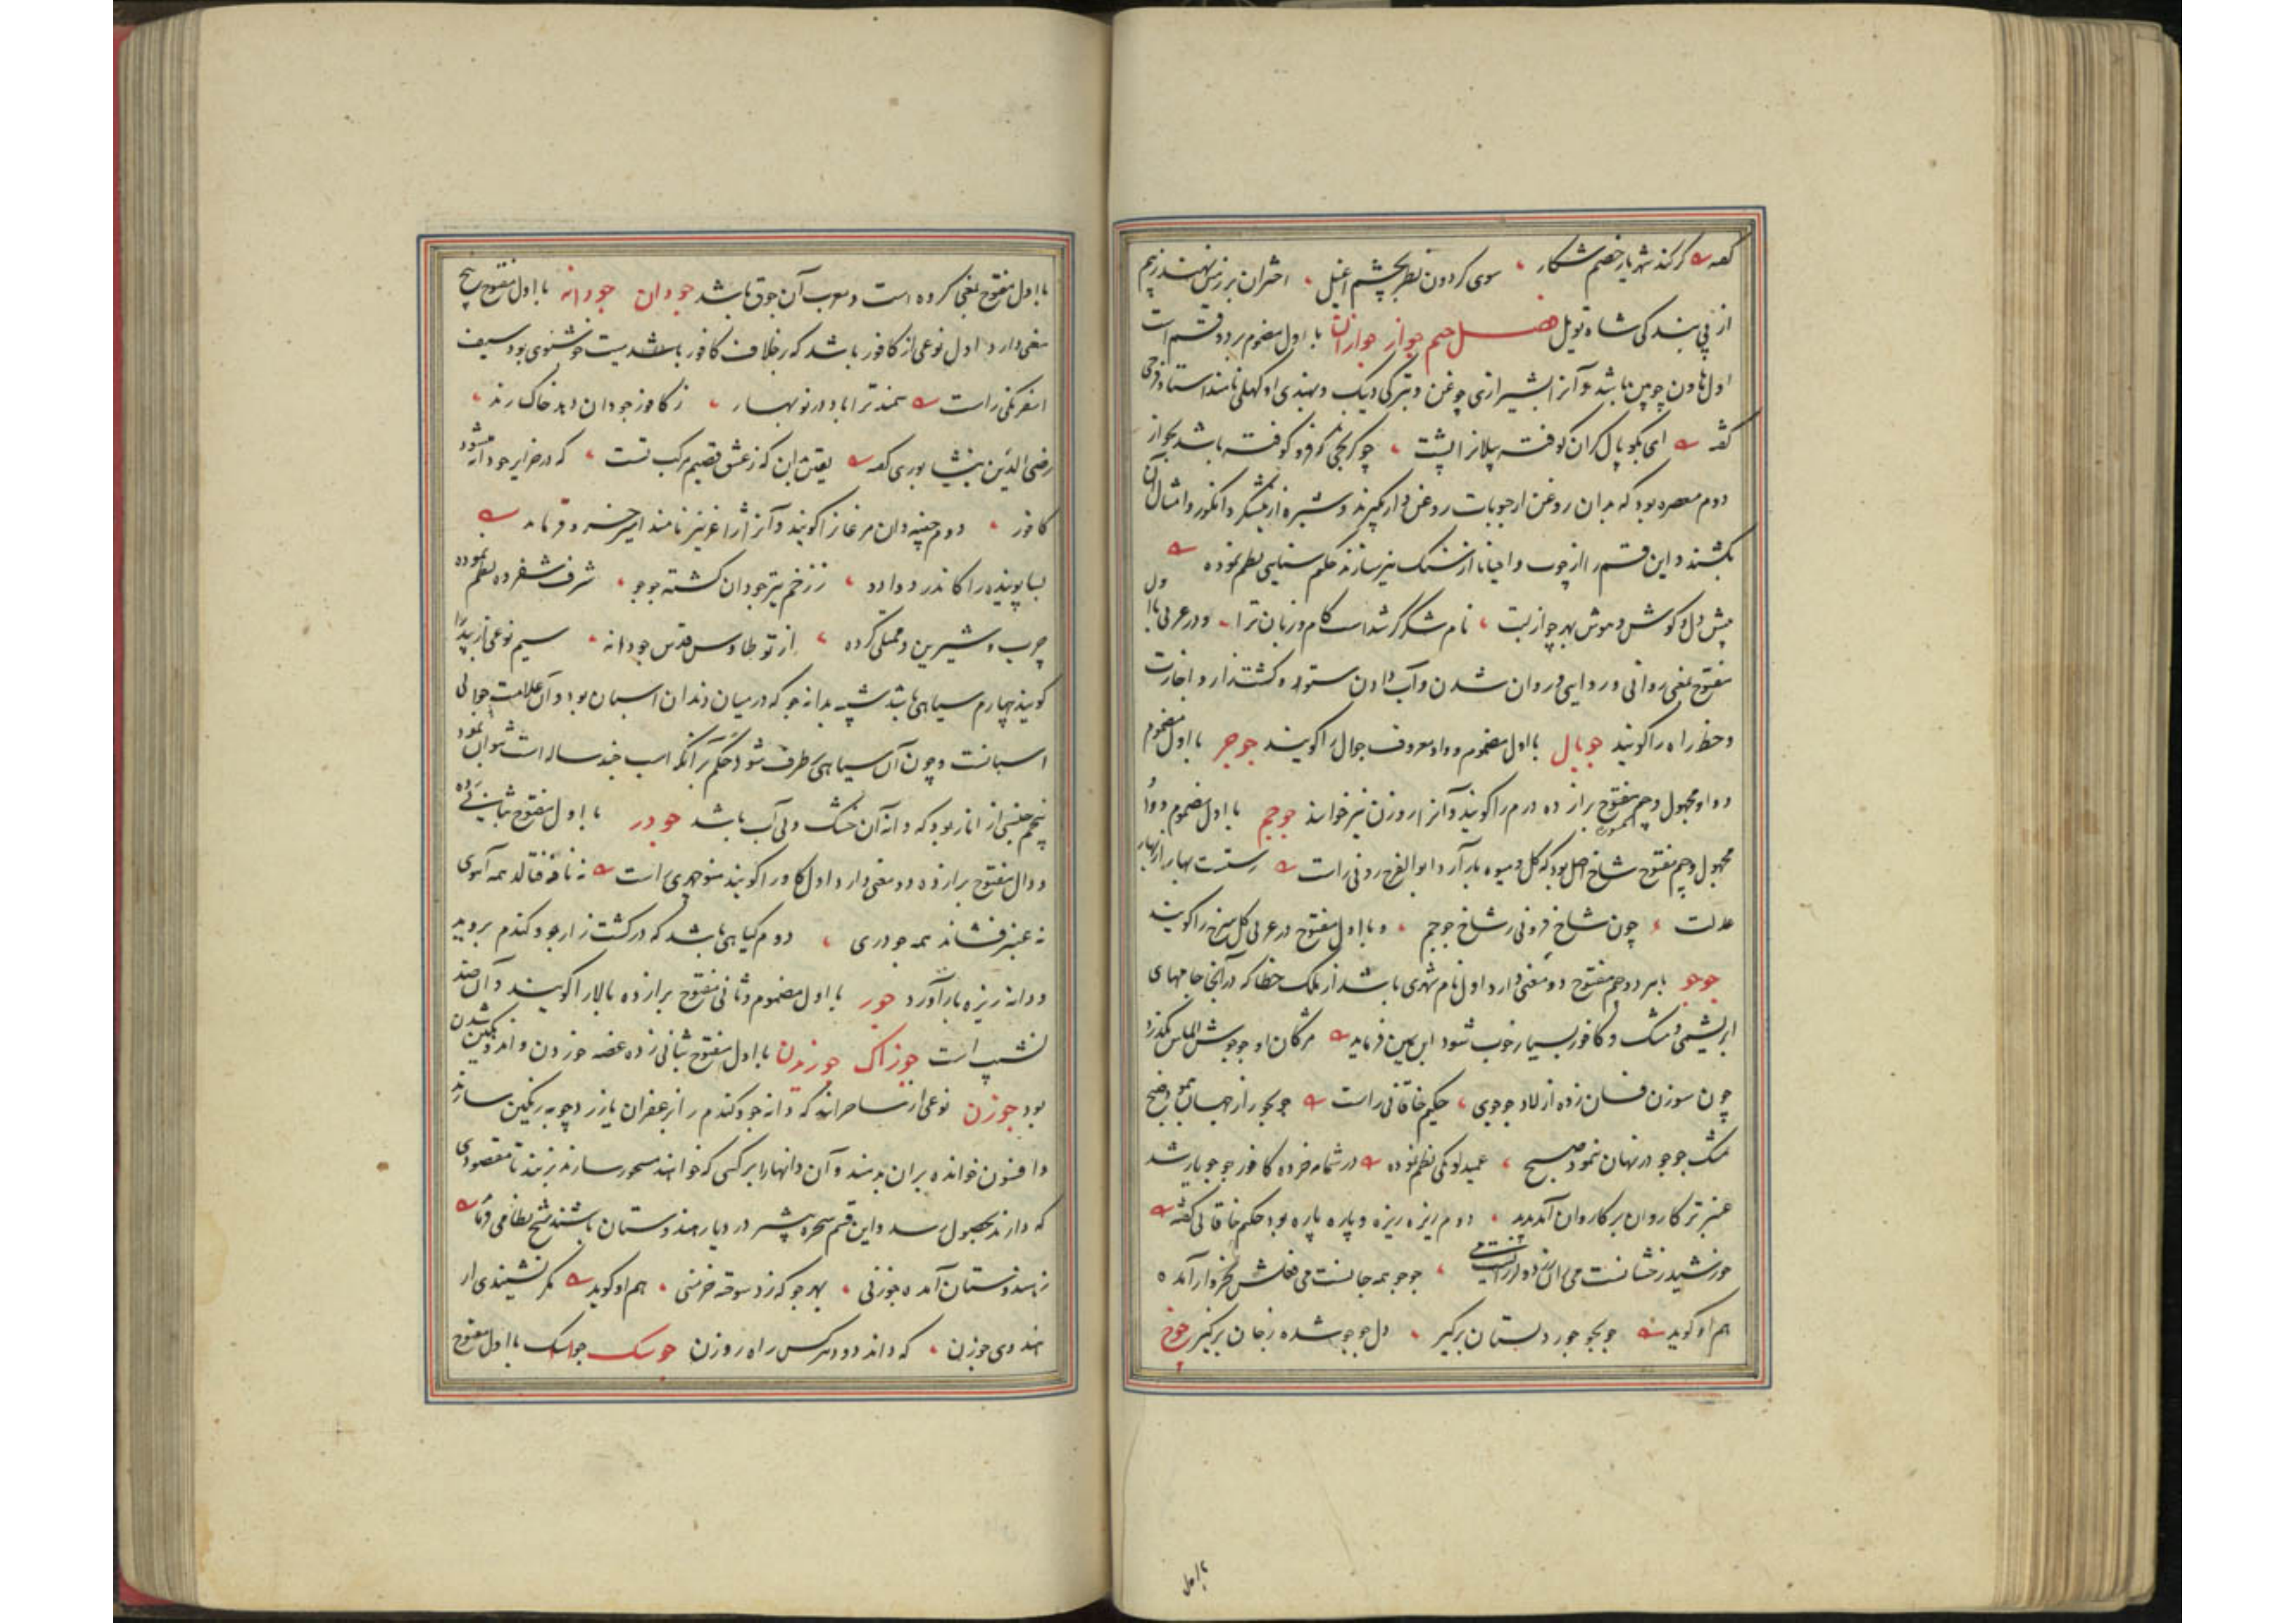 گفته گر کند شهریار خصم شکار سوی گردون نظر بچشم اغیل اختران بر زمین نهند زبیم
از پی بندگی شاه تویل فصل جیم جواز جوازان با اول مضموم بر دو قسم است
اول هاون چوبین باشد و آنرا بشیرازی جوغن و بترکی دیبک و بهندی اوکهلی نامند استاد فرخی
گفته ای بگوپال گران کوفته پیلانرا پشت چو کرنجی که فرو کوفته باشد بجواز
دوم معصره بود که بدان روغن از حبوبات روغن دار گیرند و شیره از نیشکر و انگور و امثال آن
بکشند و این قسم را از چوب و احیانا از سنگ نیز سازند حکیم سنایی نظم نموده
پیش دل و گوش و هوش بهر جوازیت نام شکر گر شداست کام و زبان ترا و در عربی با اول
مفتوح بمعنی روانی و روایی و روان شدن و آب دادن ستور و کشتزار و اجازت
و خط راه را گویند جوبال با اول مضموم و واو معروف جوال را گویند جوجر با اول مضموم
و واو مجهول و جیم مفتوح برا زده درم را گویند و آنرا روزن نیز خوانند جوجم با اول مضموم و واو
مجهول و جیم مفتوح شاخ اصل بود که گل و میوه بار آرد ابو الفرج رونی راست رستست بهار از بهار
عدلت چون شاخ فزونی ز شاخ جوجم و با اول مفتوح در عربی گل سرخ را گویند
جوجو بهر دو جیم مفتوح دو معنی دارد اول نام شهری باشد از ملک خطا که در آنجا جامهای
ابریشمی و مشک و کافور بسیار خوب شود ابن یمین فرماید مژگان او جوجوش الماس بگذرد
چون سوزن فسان زده از لاد جوجوی حکیم خاقانی راست جوجو راز جهان بنمود صبح
مشک جوجو در نهان بنمود صبح عمید لوبکی نظم نموده در شمامه خرده کافور جوجو بار شد
عنبر تر کاروان بر کاروان آمد پدید دوم ریزه ریزه و پاره پاره بود حکیم خاقانی گفته
جوجو همه جا نست می فعلش بخروار آمده
هم او گوید جوجو جور دلستان برگیر دل جوجو شده ز جان برگیر جوخ
با اول
با اول مفتوح بمعنی گروه است و معرب آن جوق باشد جودان جودانه با اول مفتوح پنج
معنی دارد اول نوعی از کافور باشد که بر خلاف کافور باشد میت خوشبوی بود سیف
اسفرنگی راست سمند ترا باد در نوبهار ز کافور جودان دهد خاک رند
رضی الدین نیشابوری گفته یقین بدان که ز عشق قصیم مرکب تست که در خرایر جودانه میشود
کافور دوم چینه دان مرغانرا گویند و آنرا ژاغر نیز نامند امیر خسرو فرماید
بسا پوینده را کاندر دوادو ز زخم تیر جودان گشته جوجو شرف شفروه نظم نموده
چرب و شیرین و ممتلی کرده از تو طاوس قدس جودانه سیم نوعی از بید را
گویند چهارم سیاهی باشد شبیه بدانه جو که در میان دندان اسبان بود و آن علامت جوانی
اسبانست و چون آن سیاهی برطرف شود حکم بر آنکه اسب چند ساله است نتوان نمود
پنجم جنسی از انار بود که دانه آن خشک و بی آب باشد جودر با اول مفتوح بثانی زده
و دال مفتوح برا زده دو معنی دارد اول گاو را گویند منوچهری راست نه نافه فتالد همه آهوی
نه عنبر فشاند همه جودری دوم گیاهی باشد که در کشت زار جو و گندم بروید
و دانه ریزه بار آورد جور با اول مضموم و ثانی مفتوح برا زده بالا را گویند و آن ضد
نشیب است جوزاک جوزیدن با اول مفتوح بثانی زده غصه خوردن و اندوهگین شدن
بود جوزن نوعی از ساحرانند که دانه جو و گندم را بزعفران یا زرد چوبه رنگین سازند
و افسون خوانده بران بدمند و آن دانها را بر کسی که خواهند مسحور سازند بزنند تا مقصودی
که دارند بحصول رسد و این قسم سحره بیشتر در دیار هندوستان باشند شیخ نظامی فرماید
ز هندوستان آمده جوزنی بهر جو که زد سوخته خرمنی هم او گوید مگر نشنیدی از
هندوی جوزن که داند دود هر کس راه روزن جوسک جوالسک با اول مفتوح